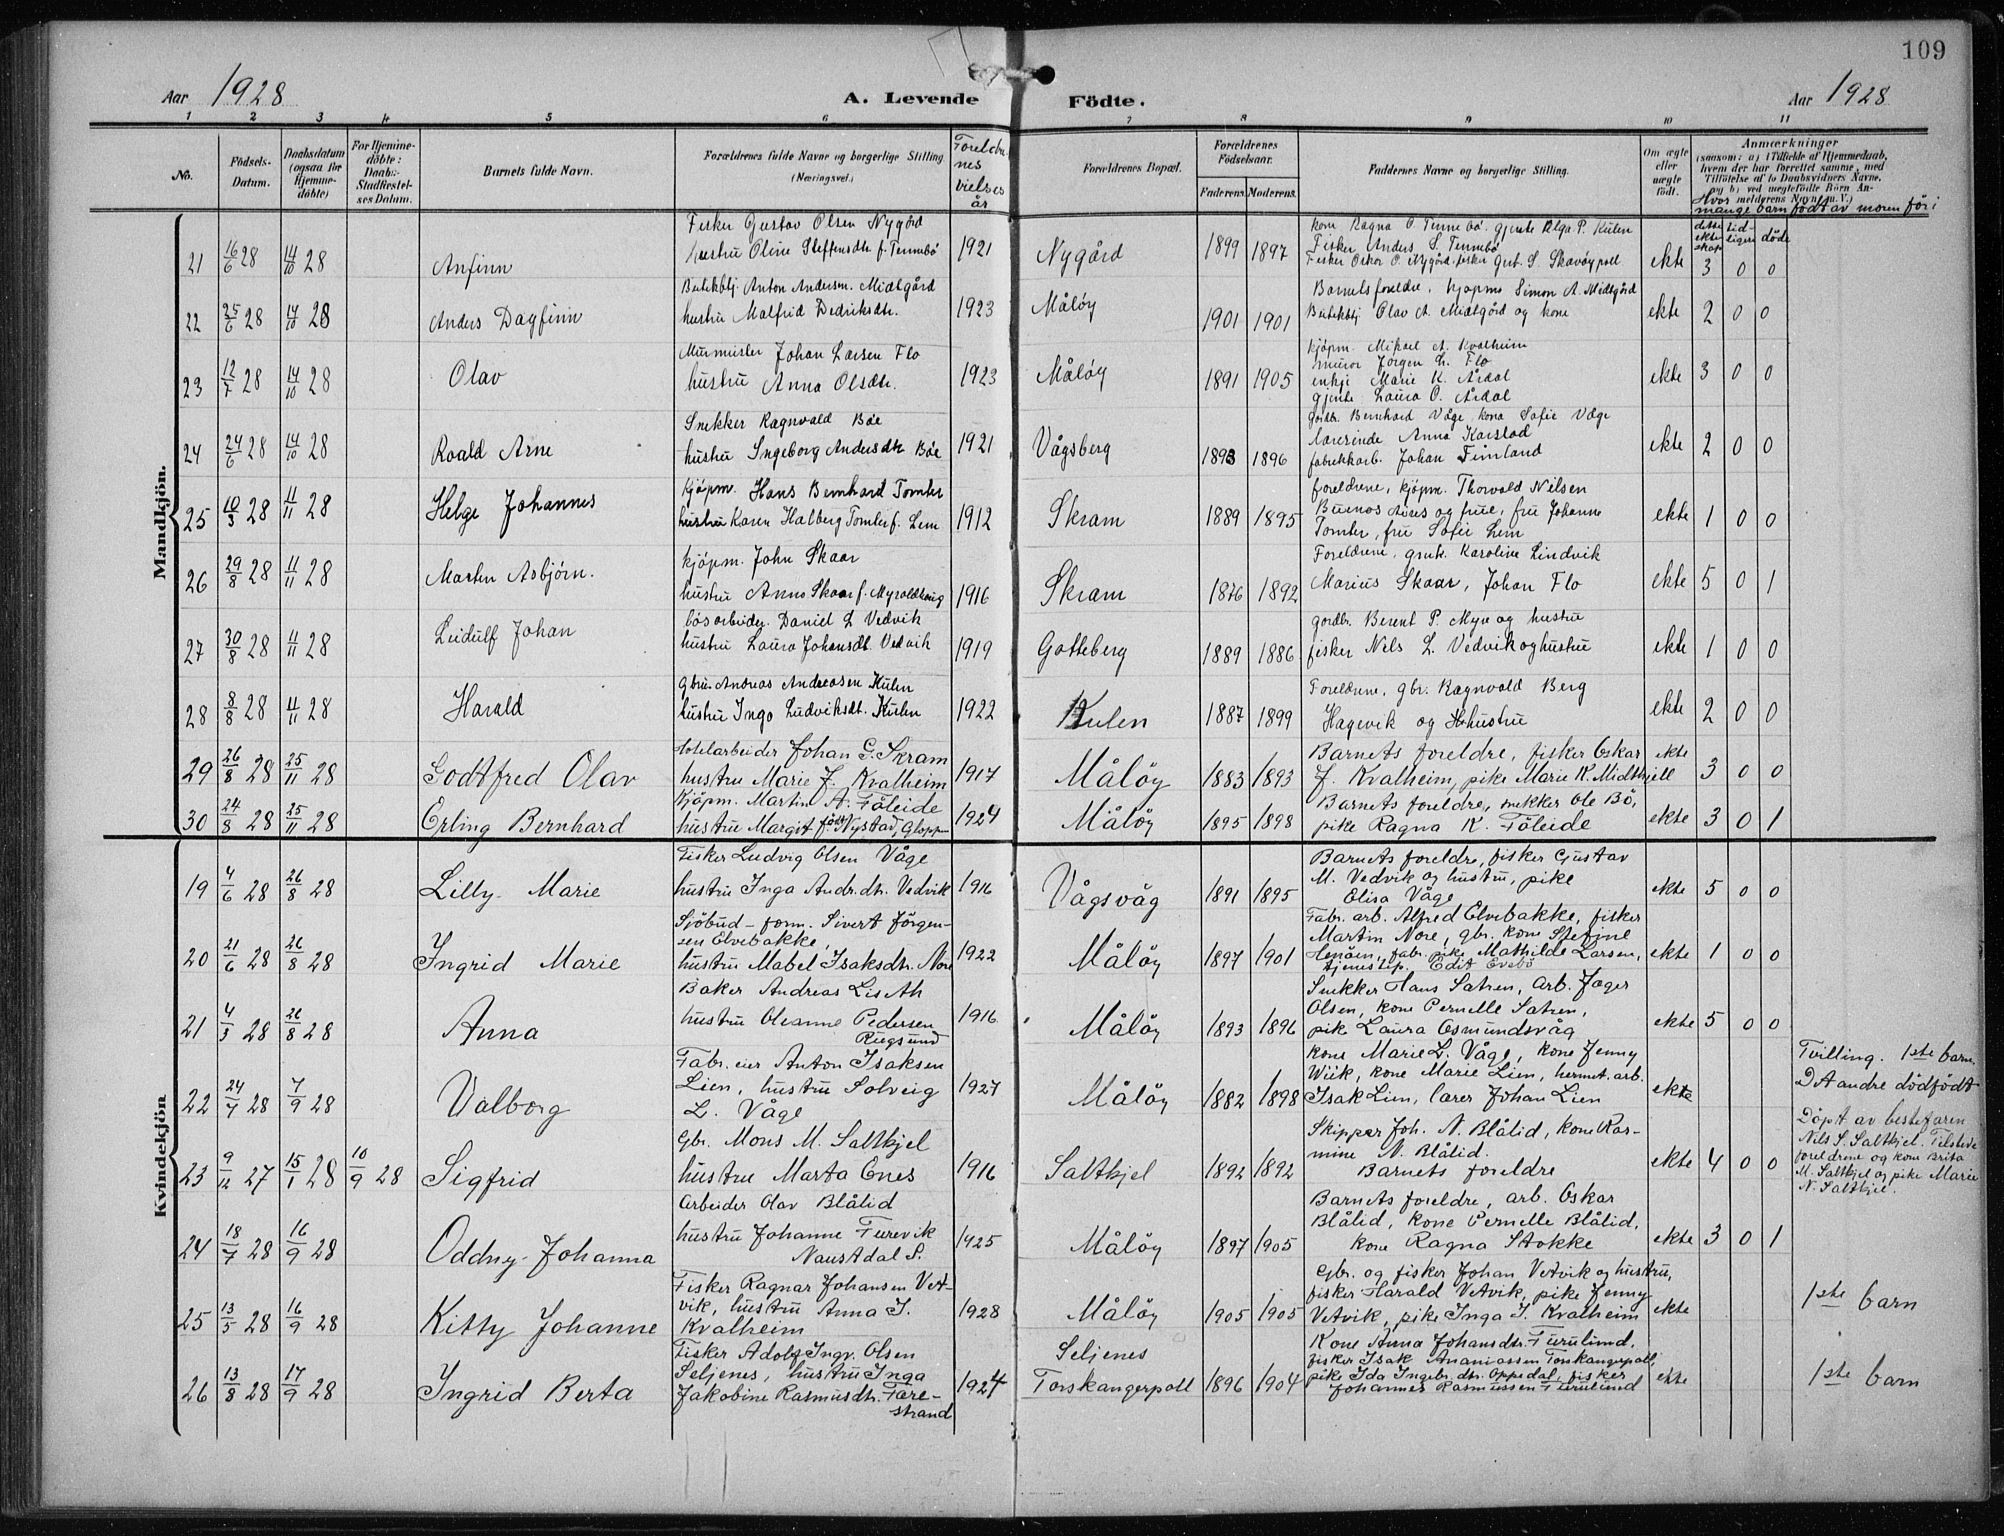 109
Aar 1928
A. Levende Födte.
Aar 1928
1 2 3 4 5 6 7 8 9 10 11
No.
Födsels-Datum.
Daabsdatum (ogsaa for Hjemmedöbte)
For Hjemmedöbte: Daabs-Stadfæstelses Datum.
Barnets fulde Navn.
Forældrenes fulde Navne og borgerlige Stilling (Næringsvei.)
Foreldrenes vielsesår
Forældrenes Bopæl.
Forældrenes Födselsaar.
Faderens. Moderens.
Faddernes Navne og borgerlige Stilling.
Om ægte eller uægte födt.
Anmærkninger
(saasom: a) i Tilfælde af Hjemmedaab, hvem der har forrettet samme, med Tilföielse af to Daabsvidners Navne, og b) ved uegtefödte Börn Anmelderens Navn m. V.)
Hvor mange barn født av moren för i
dette ekteskap tidligere döde
Mandkjön.
21 16/6 28 14/10 28 Anfinn
Fisker Gustav Olsen Nygård
hustru Oline Steffensdtr f. Tennebö 1921 Nygård 1899 1897
kone Ragna O. Tennebö. gjente Olga P. Kulen
Fisker Anders S. Tennebö
Fisker Oskar O. Nygård. fisker Gut. S. Skavöypoll
ekte 3 0 0
22 25/6 28 14/10 28 Anders Dagfinn
Butikbtj Anton Andersen. Midtgård
hustru Malfrid Dedriksdtr. 1923 Måløy 1901 1901
Barnets foreldre, kjøpm Simon A. Midtgård
Butikbtj Olav A. Midtgård og kone
ekte 2 0 0
23 12/7 28 14/10 28 Olav
Murmester Johan Larsen Flo
hustru Anna Olsdtr. 1923 Måløy 1891 1905
kjøpm. Mikael A. Kvalheim
murer Jörgen L. Flo
enkje Marie K. Årdal
gjente Laura O. Årdal
ekte 3 0 0
24 24/6 28 14/10 28 Roald Arne
Snekker Ragnvald Böe
hustru Ingeborg Andersdtr Böe 1921 Vågsberg 1893 1896
gårdbr. Bernhard Våge kona Sofie Våge
lærerinde Anna Karstad
fabrikkarb. Johan Fimland
ekte 2 0 0
25 10/3 28 11/11 28 Helge Johannes
kjøpm. Hans Bernhard Tomter
hustru Karen Halberg Tomter f. Lem 1912 Skram 1889 1895
foreldrene, kjøpm. Thorvald Nilsen
Buenos Aires og frue, fru Johanne
Tomter, fru Sofie Lem
ekte 1 0 0
26 29/8 28 11/11 28 Martin Asbjørn.
kjøpm. John Skaar
hustru Anna Skaar f. Myroldhaug 1916 Skram 1876 1892
Foreldrene, gmk. Karoline Lindvik
Marius Skaar, Johan Flo
ekte 5 0 1
27 30/8 28 11/11 28 Leidulf Johan
løsarbeider. Daniel L Vedvik
hustru Laura Johansdt. Vedvik 1919 Gotteberg 1889 1886
gårdbr. Berent P. Myre og hustru
fisker Nels L. Vedvik og hustru
ekte 1 0 0
28 8/8 28 11/11 28 Harald
Gbru. Andreas Andreasen Kulen
hustru Inga Ludviksdt. Kulen 1922 Kulen 1887 1899
Foreldrene, gbr. Ragnvald Berg
Hagevik og hustru
ekte 2 0 0
29 26/8 28 25/11 28 Godtfred Olav
Hotelarbeider Johan G. Skram
hustru Marie J. Kvalheim 1917 Måløy 1883 1893
Barnets foreldre, fisker Oskar
J. Kvalheim, pike Marie K. Midthjell
ekte 3 0 0
30 24/8 28 25/11 28 Erling Bernhard
Kjøpm. Martin A. Föleide
hustru Margit født Nystad, Gloppen 1924 Måløy 1895 1898
Barnets foreldre, snekker Ole Bö,
pike Ragna K. Föleide
ekte 3 0 1
Kvindekjön
19 4/6 28 26/8 28 Lilly Marie
Fisker Ludvig Olsen Våge
hustru Inga Andr.dtr. Vedvik 1916 Vågsvåg 1891 1895
Barnets foreldre, fisker Gustav
M. Vedvik og hustru, pike
Elisa Våge
ekte 5 0 0
20 21/6 28 26/8 28 Ingrid Marie
Sjöbud-form. Sivert Jörgen-
sen Elvebakke,
hustru Mabel Isaksdtr. Nore 1922 Måløy 1897 1901
Fabr. arb. Alfred Elvebakke, fisker
Martin Nore, gbr. kone Stefine
Henöen, fabr. pike Mathilde Larsen,
tjenestep. Edit Evebö
ekte 1 0 0
21 4/3 28 26/8 28 Anna
Baker Andreas Liseth
hustru Oleanne Pedersen
Rugsund 1916 Måløy 1893 1896
Snekker Hans Satren, Arb. Jæger
Olsen, kone Pernelle Satren,
pik Laura Osmundsvåg
ekte 5 0 0
22 24/7 28 7/9 28 Valborg
Fabr. eier Anton Isaksen
Lien, hustru Solveig
L. Våge 1927 Måløy 1882 1898
kone Marie L. Våge, kone Jenny
Wiik, kone Marie Lien, hermet. arb.
Isak Lien, lærer Johan Lien
ekte
Tvilling. 1ste barn.
Det andre dödfödt
23 9/12 27 15/1 28 10/9 28 Sigfrid
Gbr. Mons M. Saltkjel
hustru Marta Enes 1916 Saltkjel 1892 1892
Skipper Joh. N. Blålid, kone Ras-
mine N. Blålid.
Barnets foreldre
ekte 4 0 0
Döpt av bestefaren
Nils S. Saltkjel. Tilstede
foreldrene og kone Brita
M. Saltkjel og pike Marie
N. Saltkjel.
24 18/7 28 16/9 28 Oddny Johanna
Arbeider Olav Blålid
hustru Johanne Furevik
Naustdal S. 1925 Måløy 1897 1905
Barnets foreldre, arb. Oskar
Blålid, kone Pernelle Blålid,
kone Ragna Stokke
ekte 3 0 1
25 13/5 28 16/9 28 Kitty Johanne
Fisker Ragnar Johansen Vet-
vik, hustru Anna I.
Kvalheim 1928 Måløy 1905 1905
Gbr. og fisker Johan Vetvik og hustru,
fisker Harald Vetvik, pike Jenny
Vetvik, pike Inga I. Kvalheim
ekte
1ste barn
26 13/8 28 17/9 28 Ingrid Berta
Fisker Adolf Ingv. Olsen
Seljenes, hustru Inga
Jakobine Rasmusdtr. Fure-
strand 1924
Seljenes
Torskangerpoll 1896 1904
Kone Anna Johansdtr. Furulund,
fisker Isak Ananiassen Torskangerpoll,
pike Ida Ingebr.dtr. Oppedal, fisker
Johannes Rasmussen Furulund
ekte
1ste barn